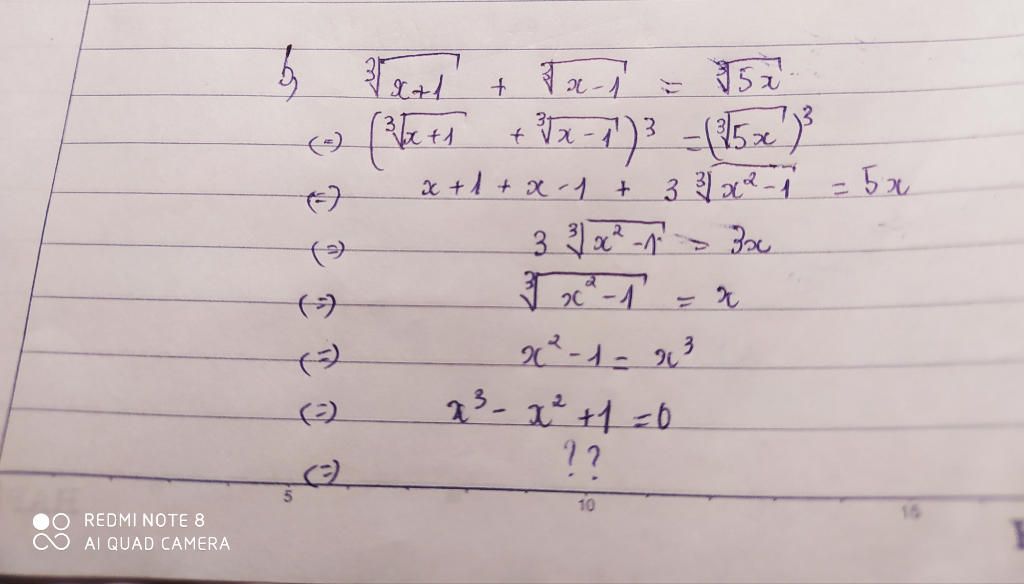 b, ∛(x+1) + ∛(x-1) = ∛(5x)
(=) (∛(x+1) + ∛(x-1))³ = (∛(5x))³
(=) x+1 + x-1 + 3 ∛(x²-1) = 5x
(=) 3 ∛(x²-1) = 3x
(=) ∛(x²-1) = x
(=) x² - 1 = x³
(=) x³ - x² + 1 = 0
(=) ??
5 10 15
REDMI NOTE 8
AI QUAD CAMERA